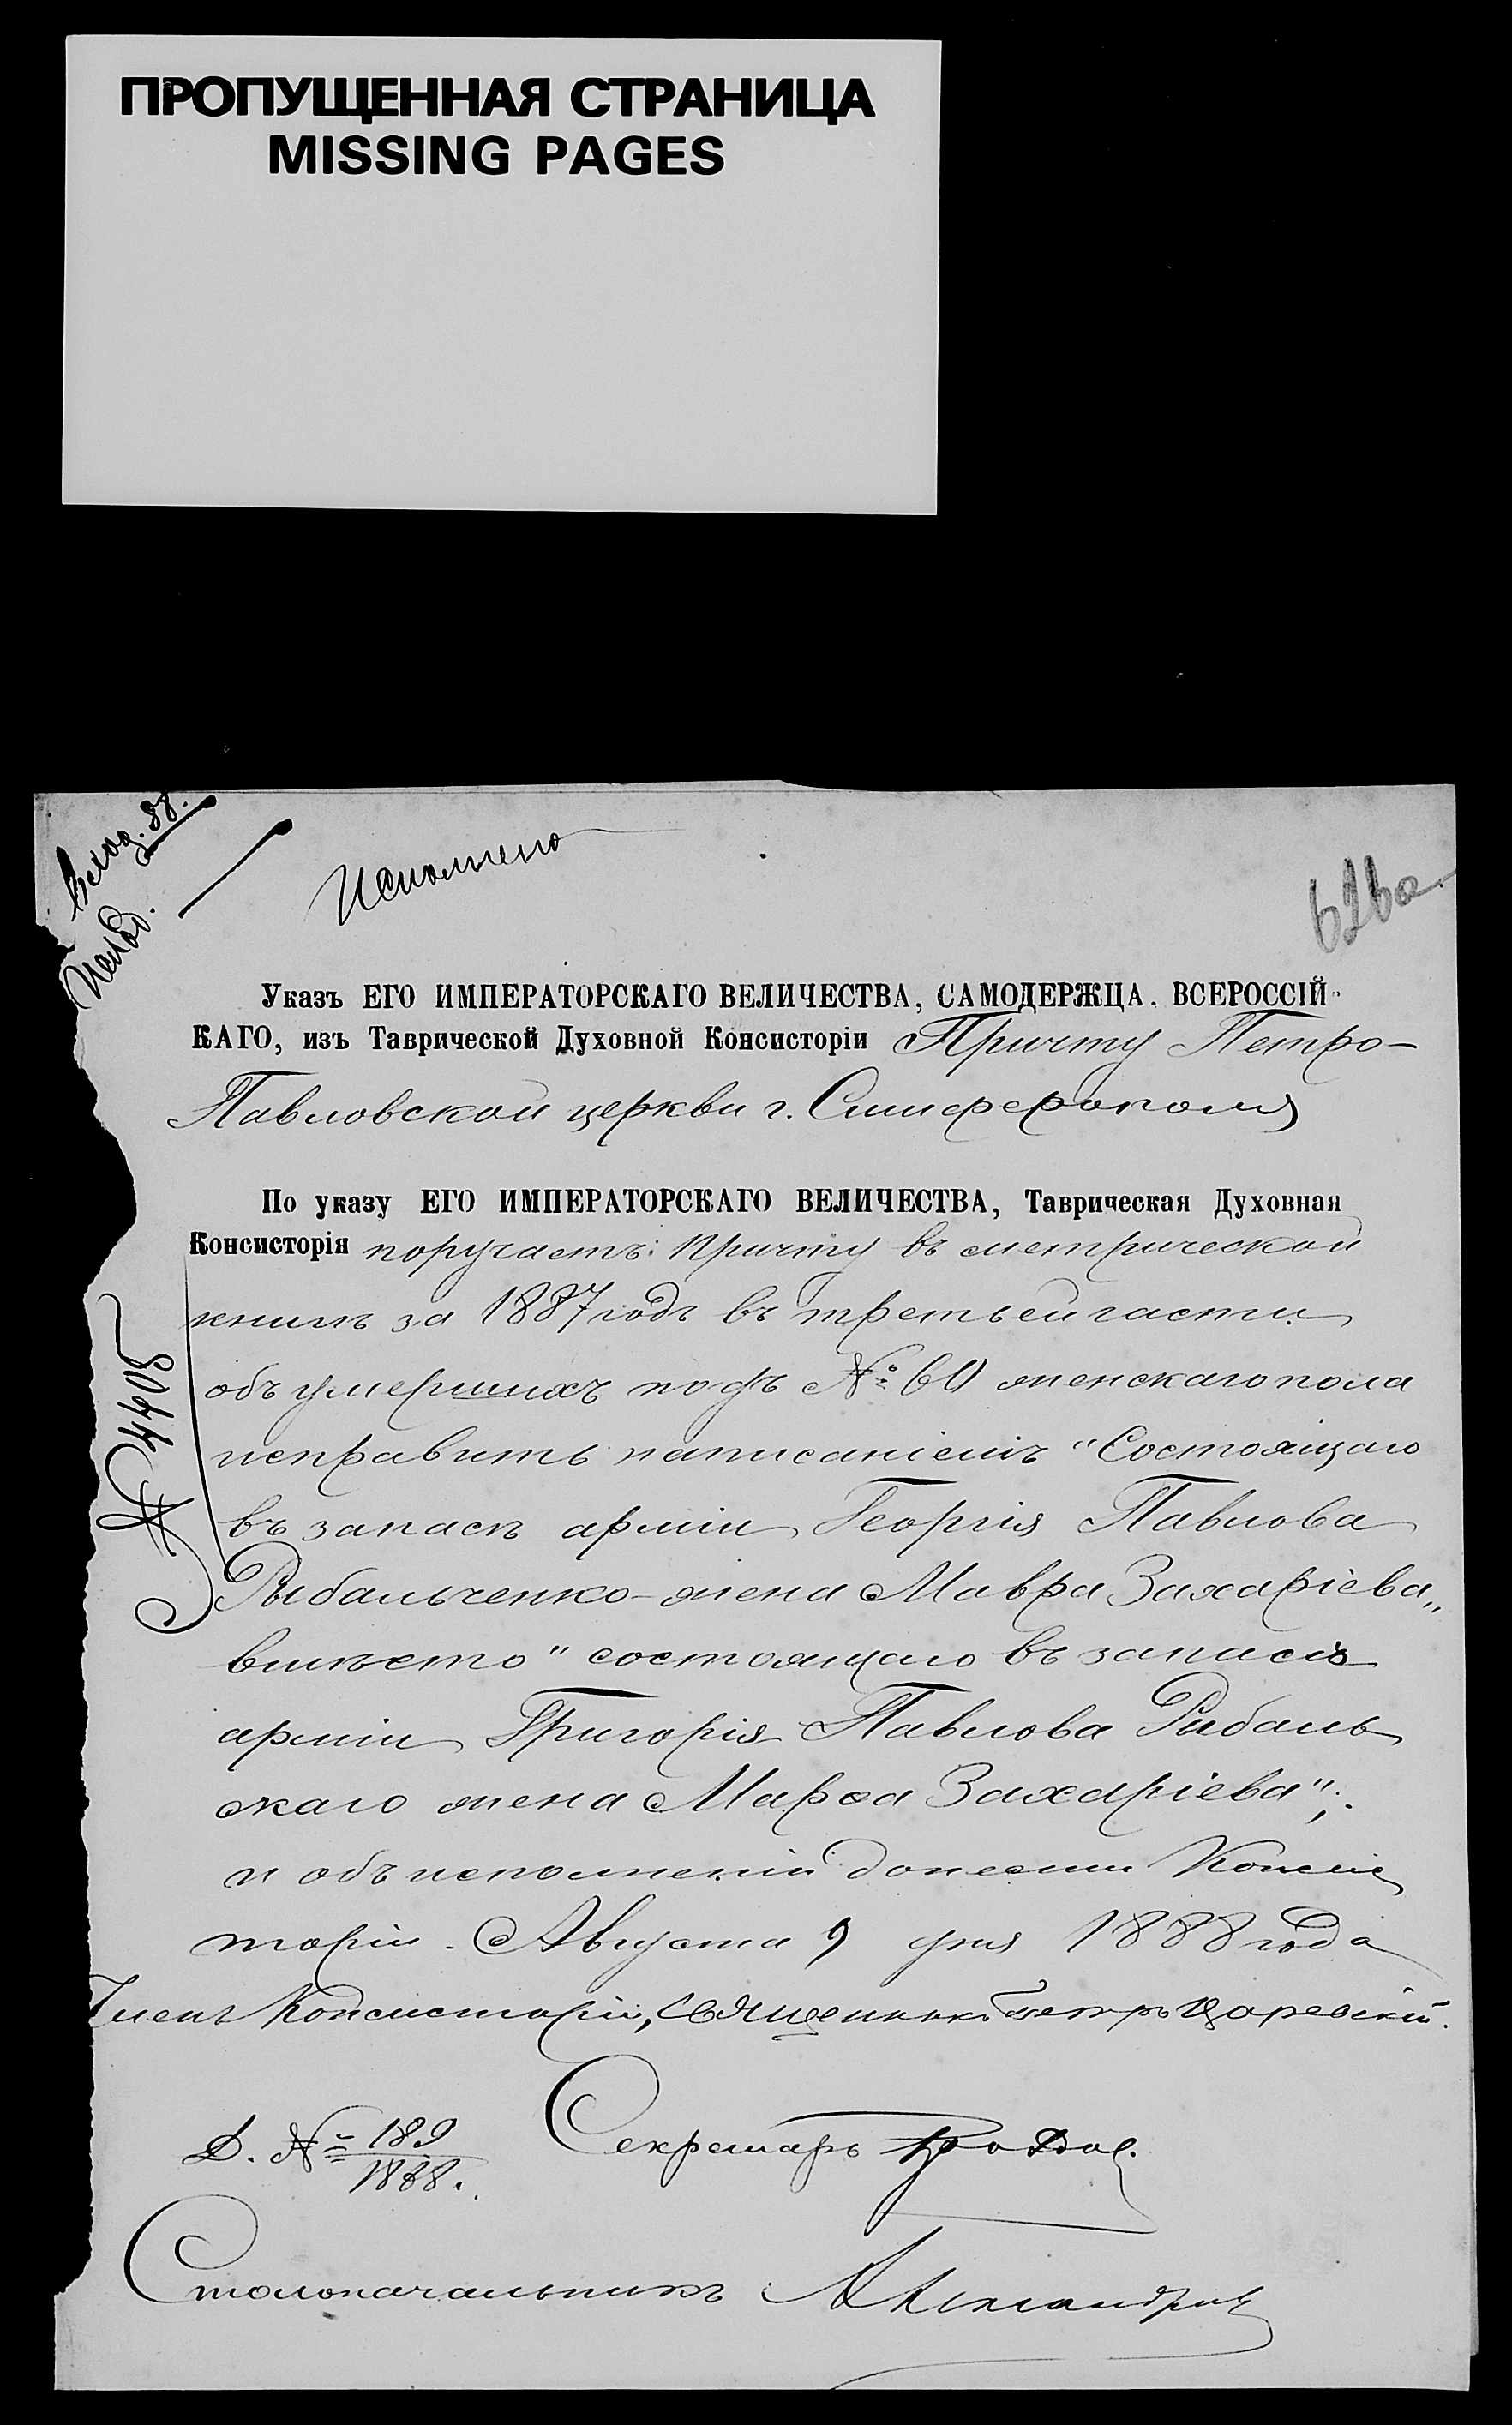 ПРОПУЩЕННАЯ СТРАНИЦА
MISSING PAGES
Вход. 88.
Исход.
Исполнено
626а.
Указъ ЕГО ИМПЕРАТОРСКАГО ВЕЛИЧЕСТВА, САМОДЕРЖЦА. ВСЕРОССІЙ-
КАГО, изъ Таврической Духовной Консисторіи Причту Петро-
Павловской церкви г. Симферополя
По указу ЕГО ИМПЕРАТОРСКАГО ВЕЛИЧЕСТВА, Таврическая Духовная
Консисторія поручаетъ: Причту въ метрической
книгѣ за 1887 годъ въ третьей части
объ умершихъ подъ № 60 женскаго пола
исправить написаніемъ "Состоящаго
въ запасѣ арміи Георгія Павлова
Рыбальченко-жена Мавра Захаріева„
вмѣсто "состоящаго въ запасѣ
арміи Григорія Павлова Рибаль
скаго жена Марѳа Захаріева";
и объ исполненіи донести Консис
торіи. Августа 9 дня 1888 года
Членъ Консисторіи, Священникъ Петръ Царевскій.
Д. № 189
1888.
Секретарь
Столоначальникъ